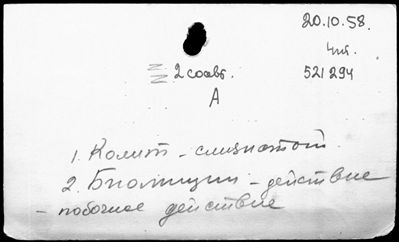 20.10.58.
Чит.
2 соавт. 521294
А
1. Колит - слизистый.
2. Биомицин - действие
- побочное действие